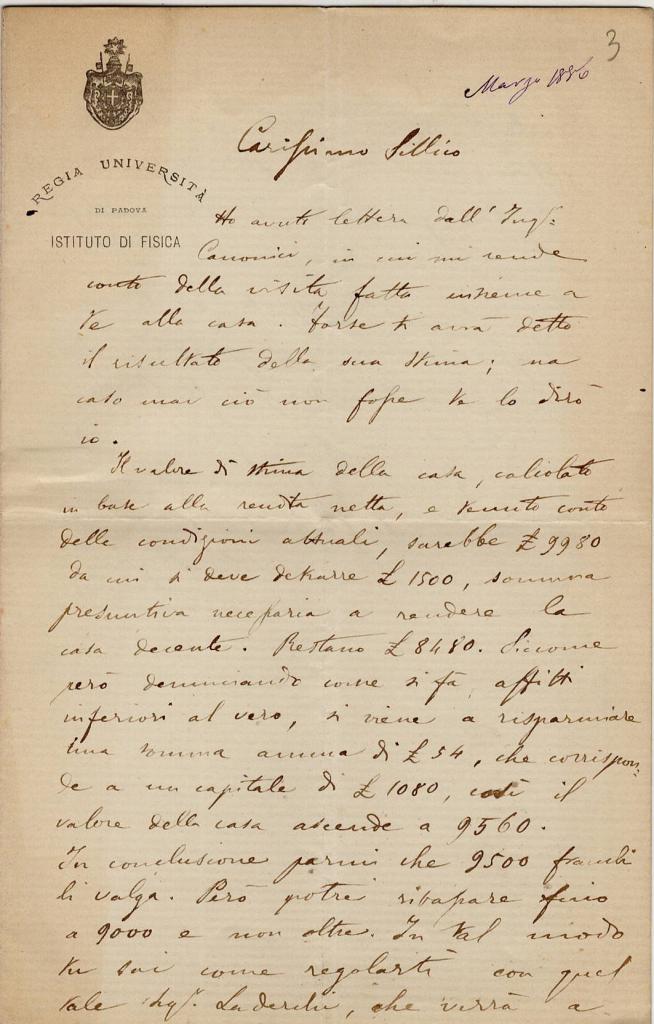 3
Marzo 1886
Carissimo Sillico
REGIA UNIVERSITÀ
DI PADOVA
ISTITUTO DI FISICA
Ho avuto lettera dall' Ing.
Canonici, in cui mi rende
conto della visita fatta insieme a
te alla casa. Forse ti avrà detto
il risultato della sua stima; ma
caso mai ciò non fosse te lo dirò
io.
Il valore di stima della casa, calcolato
in base alla rendita netta, e tenuto conto
delle condizioni attuali, sarebbe £ 9980
da cui si deve detrarre £ 1500, somma
presuntiva necessaria a rendere la
casa decente. Restano £ 8480. Siccome
però denunciando come si fa, affitti
inferiori al vero, si viene a risparmiare
una somma annua di £ 54, che corrispon=
de a un capitale di £ 1080, così il
valore della casa ascende a 9560.
In conclusione parmi che 9500 franchi
li valga. Però potrei ribassare fino
a 9000 e non oltre. In tal modo
tu sai come regolarti con quel
tale Laderchi, che verrà a